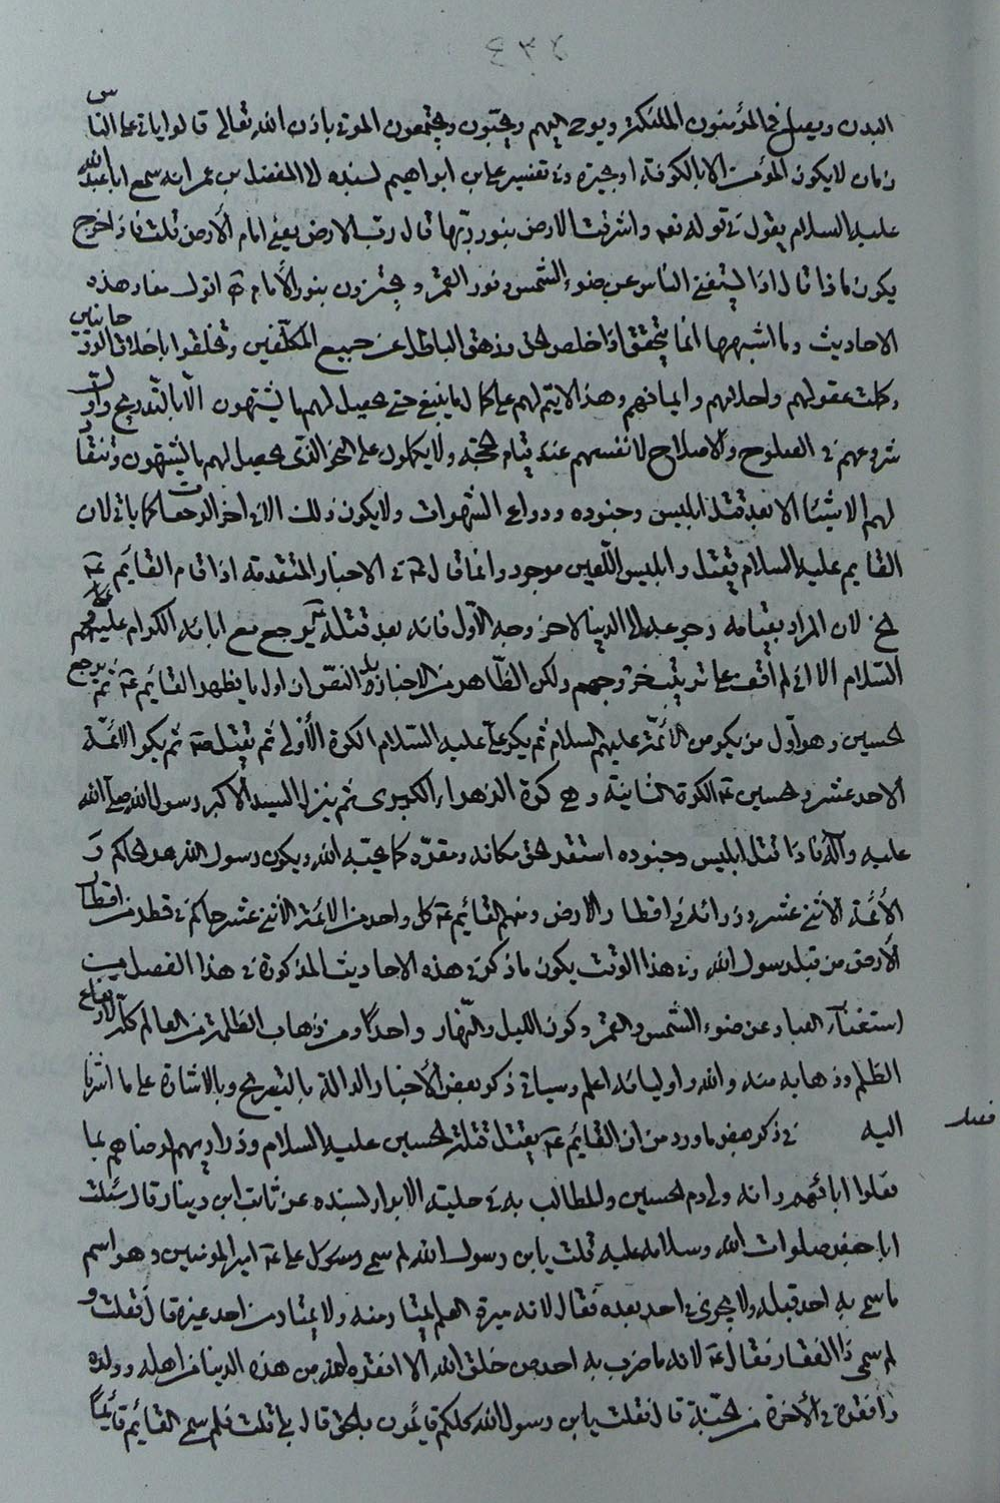 ٤٣٧
البدن ويصل في المؤمنون الملئكة ويوحى اليهم ويحيون ويجتمعون الموتى باذن الله تعالى قالوا ياتي على الناس
زمان لا يكون المؤمن الا بالكوفة او يحن وفي تفسير علي بن ابراهيم بسنده الى المفضل بن عمر انه سمع ابا عبد الله
عليه السلام يقول في قوله تعه واشرقت الارض بنور ربها قال رب الارض يعني امام الأرض قلت فاذا خرج
يكون ماذا قال اذا يستغني الناس عن ضوء الشمس ونور القمر ويجتزون بنور الأمام عه اقول مفاد هذه
الاحاديث وما اشبهها انما يتحقق اذا خلص الحق وزهق الباطل عن جميع المكلفين وتخلقوا باخلاق الروحانيين
وكملت عقولهم واحلامهم وايمانهم وهذا لا يتم لهم على كمال ما ينبغي حتى يحصل لهم ما يشتهون الا بالتدريج واول
شروعهم في الصلوح والاصلاح لانفسهم عند قيام الحجة ولا يكملون على النحو الذى يحصل لهم ما يشتهون وتنقاد
لهم الاشياء الا بعد قتل ابليس وجنوده ودواعي الشهوات ولا يكون ذلك الا في اخر الرجعات كما ياتي لان
القايم عليه السلام يقتل وابليس اللعين موجود وانما قال عه في الاحبار المتقدمة اذا قام القائم عه
الخ لان المراد بقيامه رجوعه الى الدنيا لا خروجه الأول فانه بعد قتله يرجع مع ابائه الكرام عليه وعليهم
السلام الا اني لم اقف على ترتيب خروجهم ولكن الظاهر من الاخبار بل النص ان اول ما يظهر القائم عه ثم يرجع
الحسين وهو أول من يكر من الأئمة عليهم السلام ثم يكر علي عليه السلام الكرة الأولى ثم يقتل عه ثم يكر الائمة
الاحد عشر والحسين عه الكرة الثانية وهي كرة الزهراء الكبرى ثم ينزل السيد الأكبر رسول الله صلى الله
عليه وآله فاذا قتل ابليس وجنوده استقر الحق مكانه ومقره كما يحبه الله ويكون رسول الله هو الحاكم و
الأئمة الأثني عشر وزرائه في اقطار الارض ومنهم القائم عه كل واحد من الائمة الأثني عشر حاكم في قطر من اقطار
الأرض من قبل رسول الله وفي هذا الوقت يكون ما ذكر في هذه الاحاديث المذكورة في هذا الفصل من
استغناء العباد عن ضوء الشمس والقمر وكون الليل والنهار واحدًا ومن ذهاب الظلمة من العالم كله لارتفاع
الظلم وذهابه منه والله واوليائه اعلم وسياتي ذكر بعض الأخبار الدالة بالتصريح وبالاشارة على ما اشرنا
اليه فصل في ذكر بعض ما ورد من ان القائم عه يقتل قتلة الحسين عليه السلام وذراريهم لرضاهم بما
فعلوا ابائهم وانه ولي دم الحسين والمطالب به في حلية الابرار بسنده عن ثابت ابن دينار قال سئلت
ابا جعفر صلوات الله وسلامه عليه قلت يابن رسول الله لم سمي علي عه امير المؤمنين وهو اسم
ما سمي به احد قبله ولا يجرى في احد بعده فقال لانه ميرة العلم يمتار منه ولا يمتار من احد غيره قال فقلت و
لم سمى ذا الفقار فقال عه لانه ما ضرب به احد من خلق الله الا افقره الله من هذه الدنيا من اهله وولده
وافقره في الأخرة من الجنة قال فقلت يابن رسول الله كلكم قايمون بالحق قال بلى قلت فلم سمى القايم قائمًا